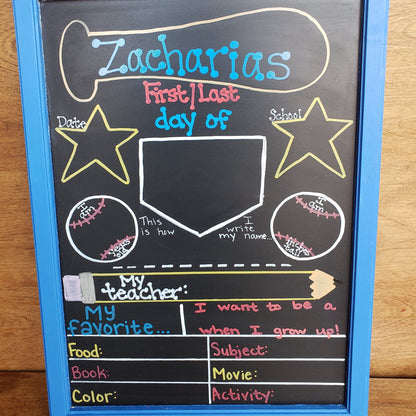 Zacharias
First/Last
day of
Date
School
I am
years old
I am
inches tall
This is how
I write my name...
My teacher:
My favorite...
I want to be a
when I grow up!
Food:
Subject:
Book:
Movie:
Color:
Activity: